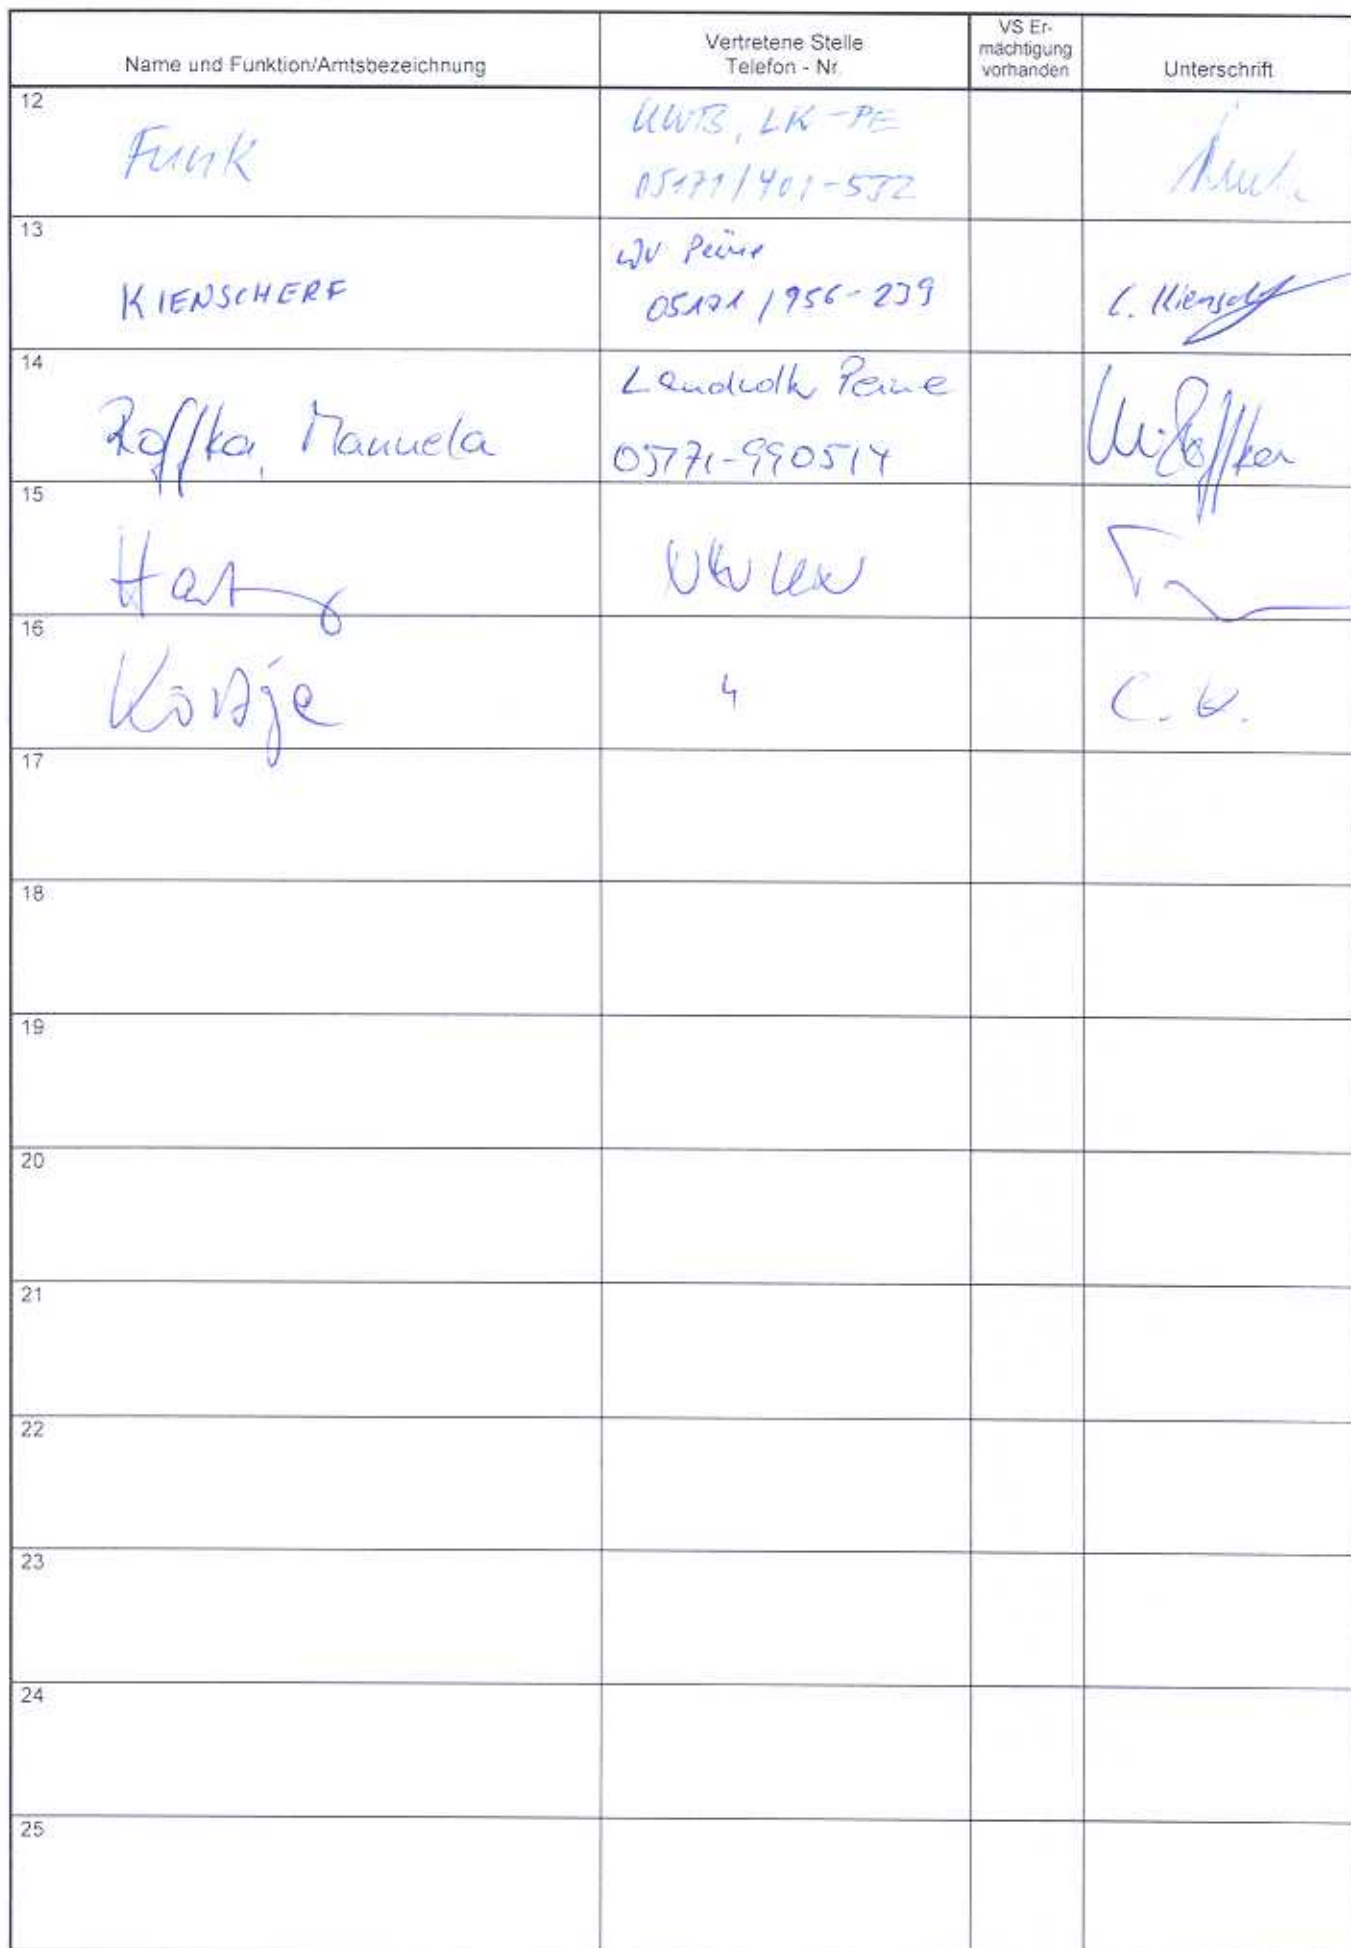 Name und Funktion/Amtsbezeichnung
Vertretene Stelle
Telefon - Nr.
VS Er-
mächtigung
vorhanden
Unterschrift
12
Funk
UWB, LK-PE
05171/401-
13
KIENSCHERF
WV Peine
05171/956-239
C. Kienscherf
14
Roffka, Manuela
Landvolk Peine
05171-990514
M. Roffka
15
16
4
C. K.
17
18
19
20
21
22
23
24
25